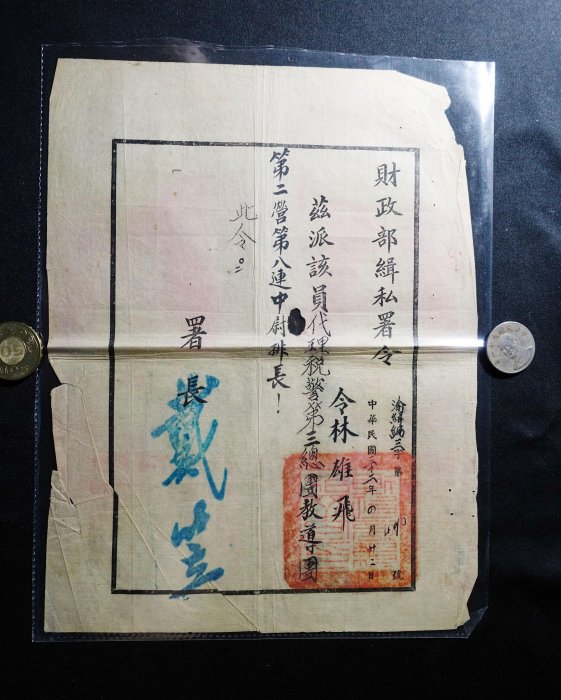 財政部緝私署令
渝緝編三字第 號
中華民國三十二年四月廿二日
令林雄飛
茲派該員代理稅警第三總團教導團
第二營第八連中尉排長！
此令。
署長 戴笠